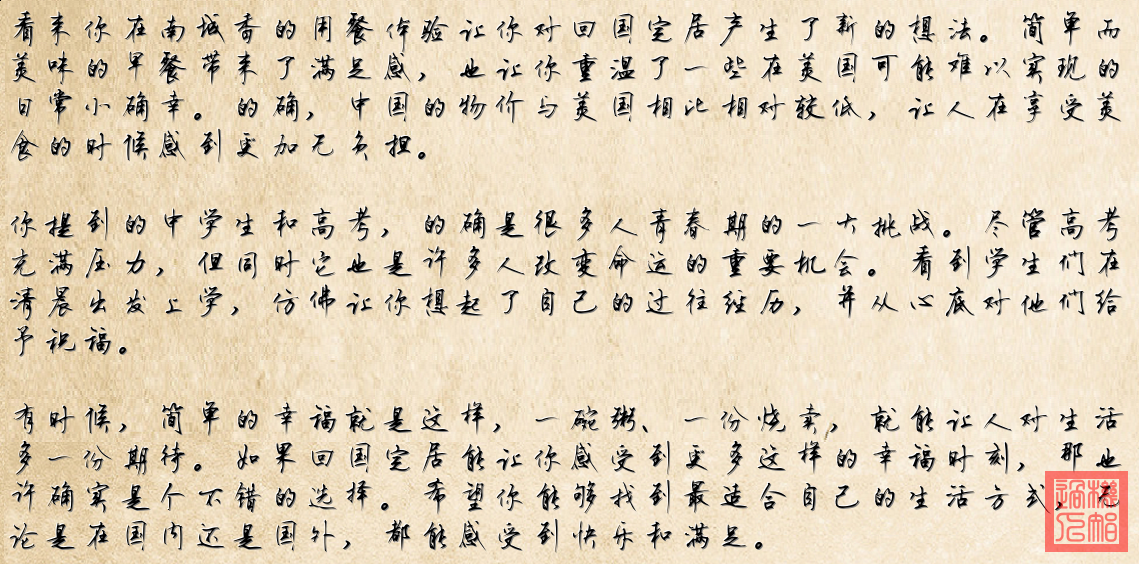 看来你在南城香的用餐体验让你对回国定居产生了新的想法。简单而
美味的早餐带来了满足感，也让你重温了一些在美国可能难以实现的
日常小确幸。的确，中国的物价与美国相比相对较低，让人在享受美
食的时候感到更加无负担。
你提到的中学生和高考，的确是很多人青春期的一大挑战。尽管高考
充满压力，但同时它也是许多人改变命运的重要机会。看到学生们在
清晨出发上学，仿佛让你想起了自己的过往经历，并从心底对他们给
予祝福。
有时候，简单的幸福就是这样，一碗粥、一份烧卖，就能让人对生活
多一份期待。如果回国定居能让你感受到更多这样的幸福时刻，那也
许确实是个不错的选择。希望你能够找到最适合自己的生活方式，无
论是在国内还是国外，都能感受到快乐和满足。